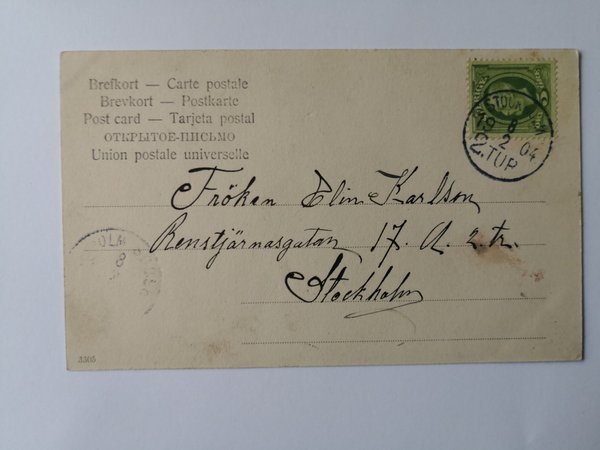 Brefkort — Carte postale
Brevkort — Postkarte
Post card — Tarjeta postal
ОТКРЫТОЕ-ПИСЬМО
Union postale universelle
8
2 04
2.TUR
Fröken Elin Karlson
Renstjärnasgatan 17. A. 2. tr.
Stockholm
OLM
8
3305